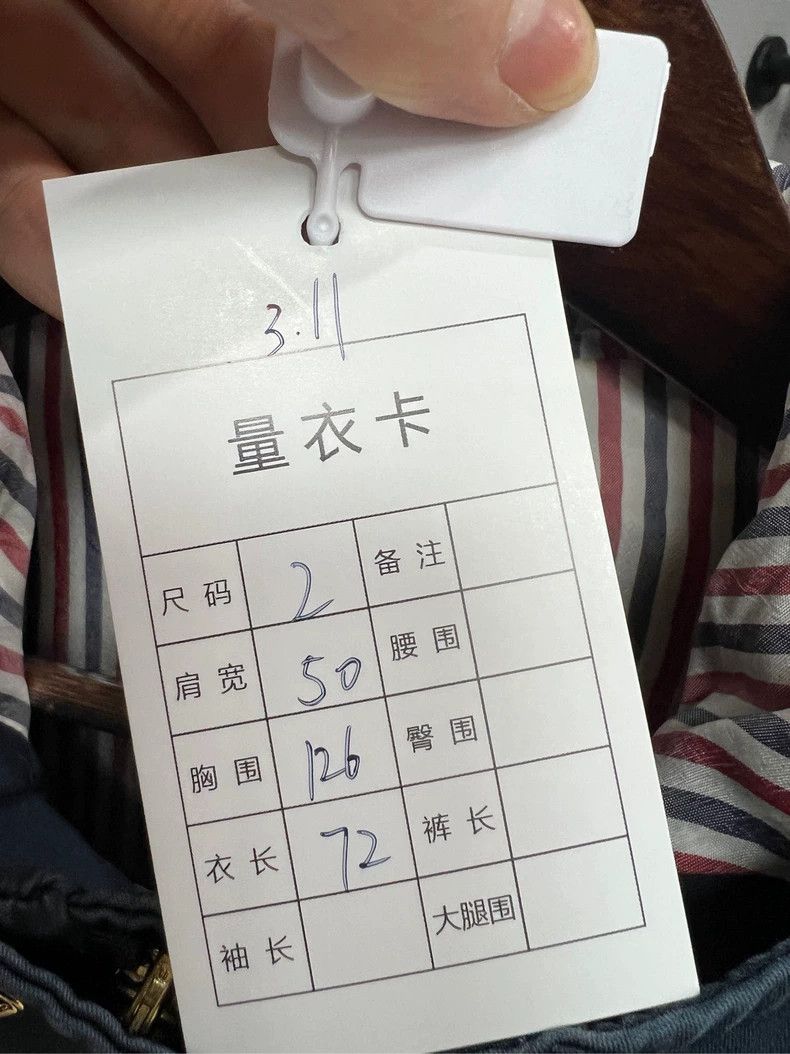 3.11
量衣卡
尺码 2 备注
肩宽 50 腰围
胸围 126 臀围
衣长 72 裤长
袖长 大腿围